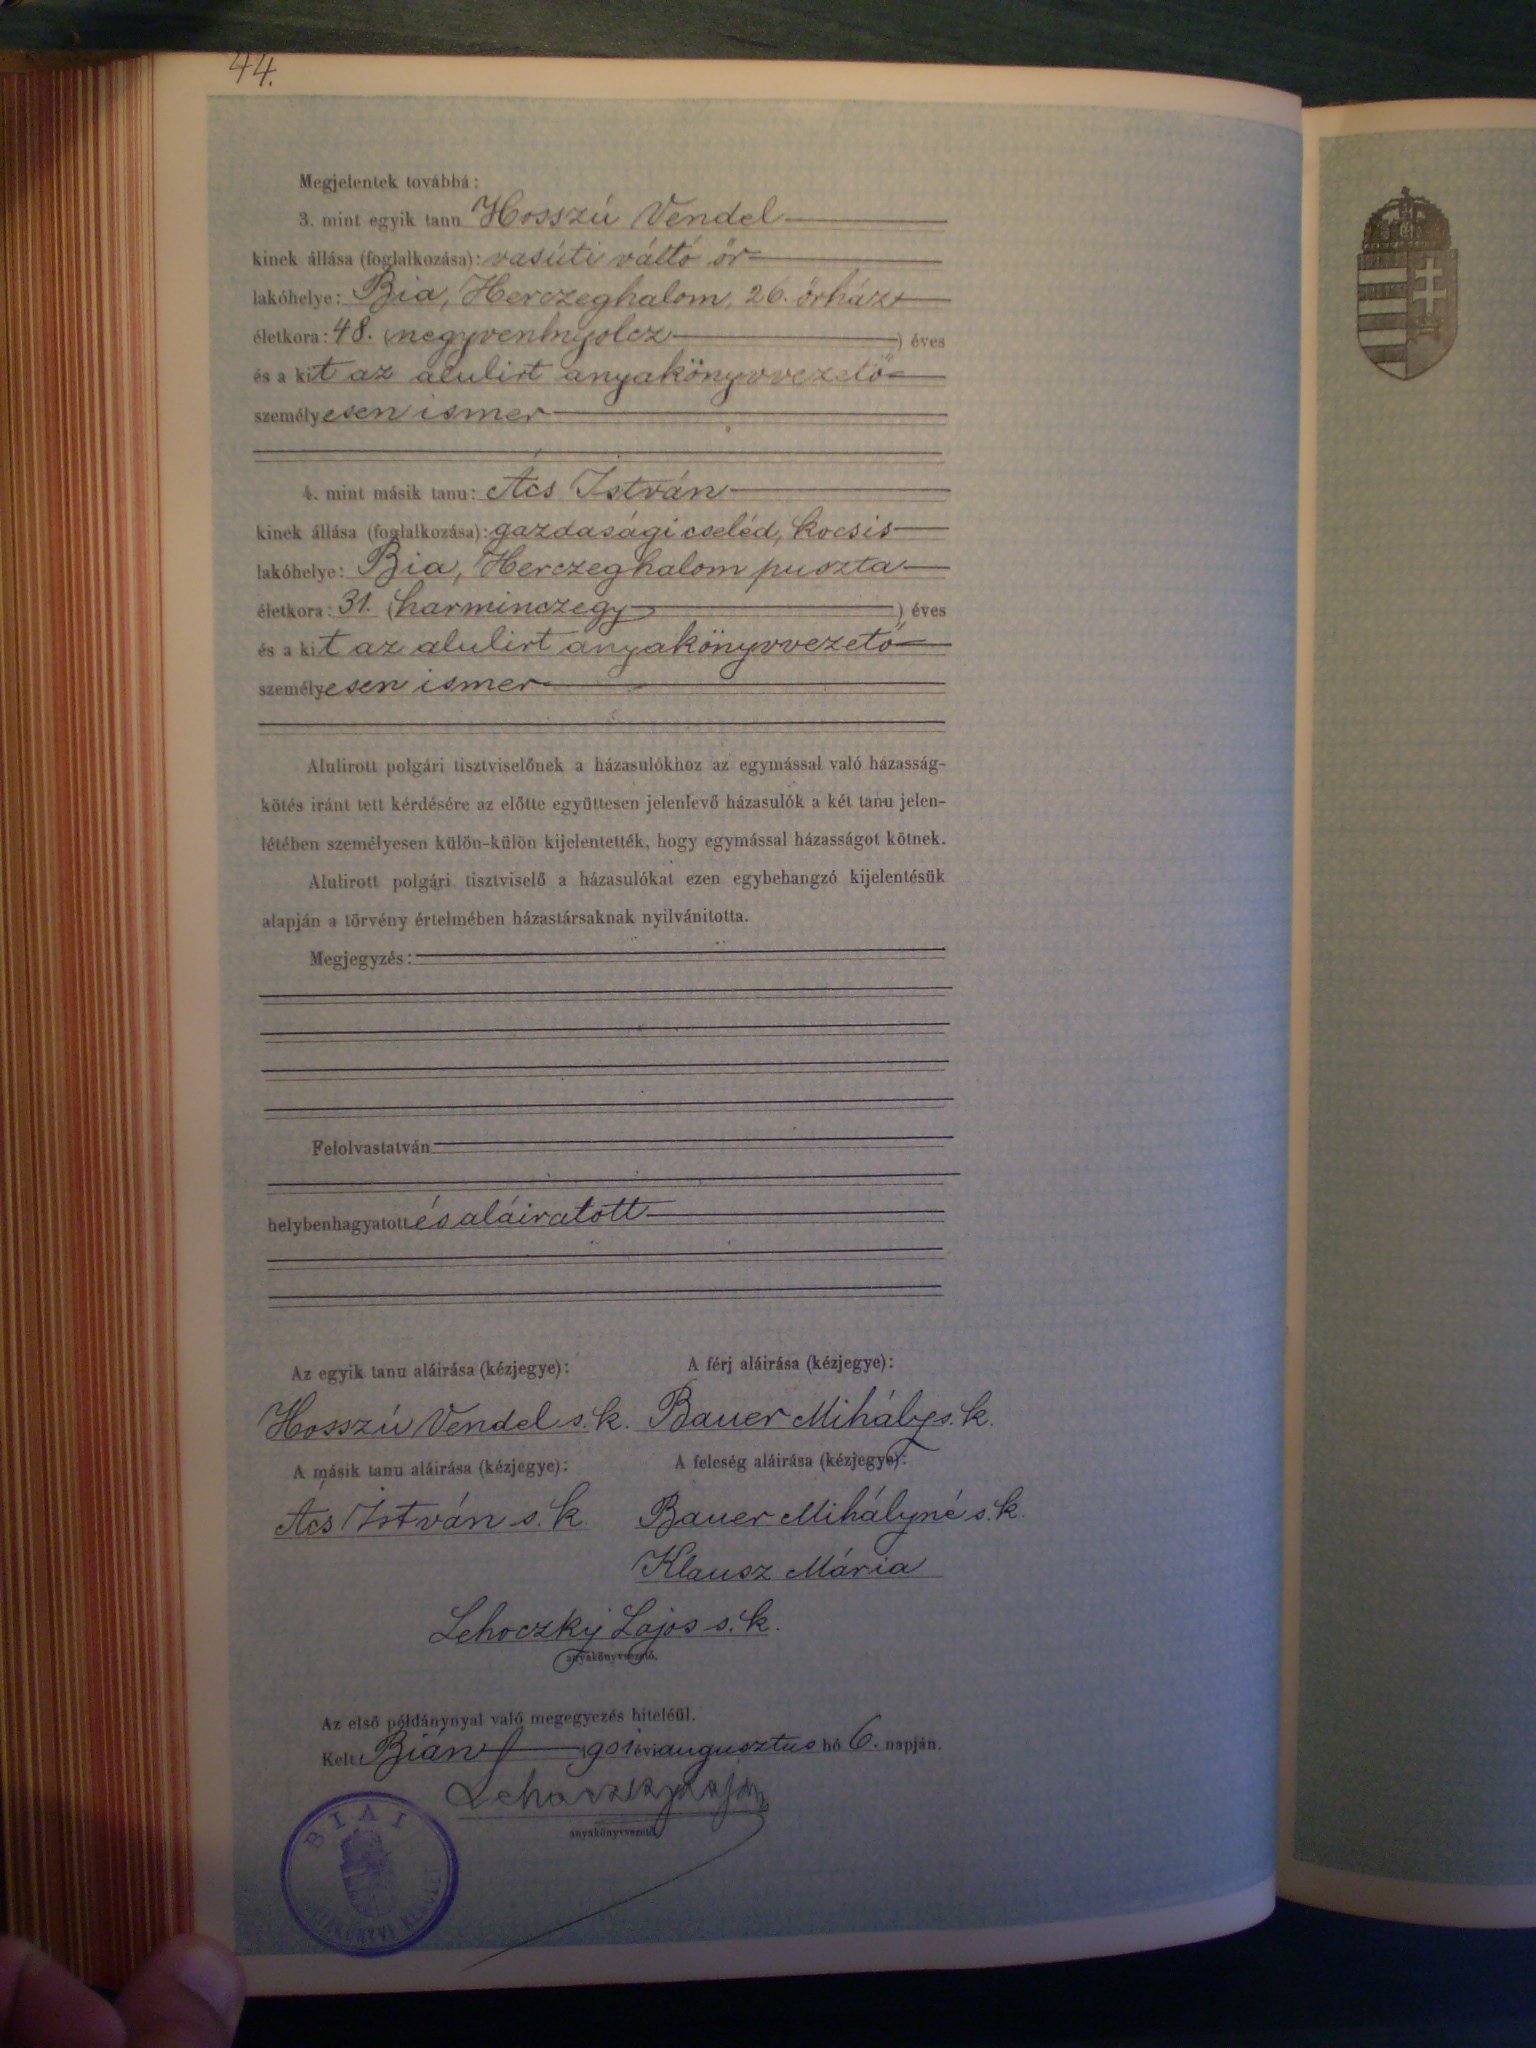 44.
Megjelentek továbbá:
3. mint egyik tanu Hosszú Vendel
kinek állása (foglalkozása): vasúti váltó őr
lakóhelye: Bia, Herczeghalom, 26. őrház
életkora: 48. (negyvennyolcz) éves
és a kit az alulirt anyakönyvvezető
személyesen ismer
4. mint másik tanu: Ács István
kinek állása (foglalkozása): gazdasági cseléd, kocsis
lakóhelye: Bia, Herczeghalom puszta
életkora: 31. (harminczegy) éves
és a kit az alulirt anyakönyvvezető
személyesen ismer
Alulirott polgári tisztviselőnek a házasulókhoz az egymással való házasság-
kötés iránt tett kérdésére az előtte együttesen jelenlevő házasulók a két tanu jelen-
létében személyesen külön-külön kijelentették, hogy egymással házasságot kötnek.
Alulirott polgári tisztviselő a házasulókat ezen egybehangzó kijelentésük
alapján a törvény értelmében házastársaknak nyilvánitotta.
Megjegyzés:
Felolvastatván
helybenhagyatott és aláiratott
Az egyik tanu aláirása (kézjegye): A férj aláirása (kézjegye):
Hosszú Vendel s.k. Bauer Mihály s.k.
A másik tanu aláirása (kézjegye): A feleség aláirása (kézjegye):
Ács István s.k. Bauer Mihályné s.k.
Klausz Mária
Lehoczky Lajos s.k.
anyakönyvvezető.
Az első példánynyal való megegyezés hiteléül.
Kelt Bián 1901 évi augusztus hó 6. napján.
Lehoczky Lajos
anyakönyvvezető.
BIAI